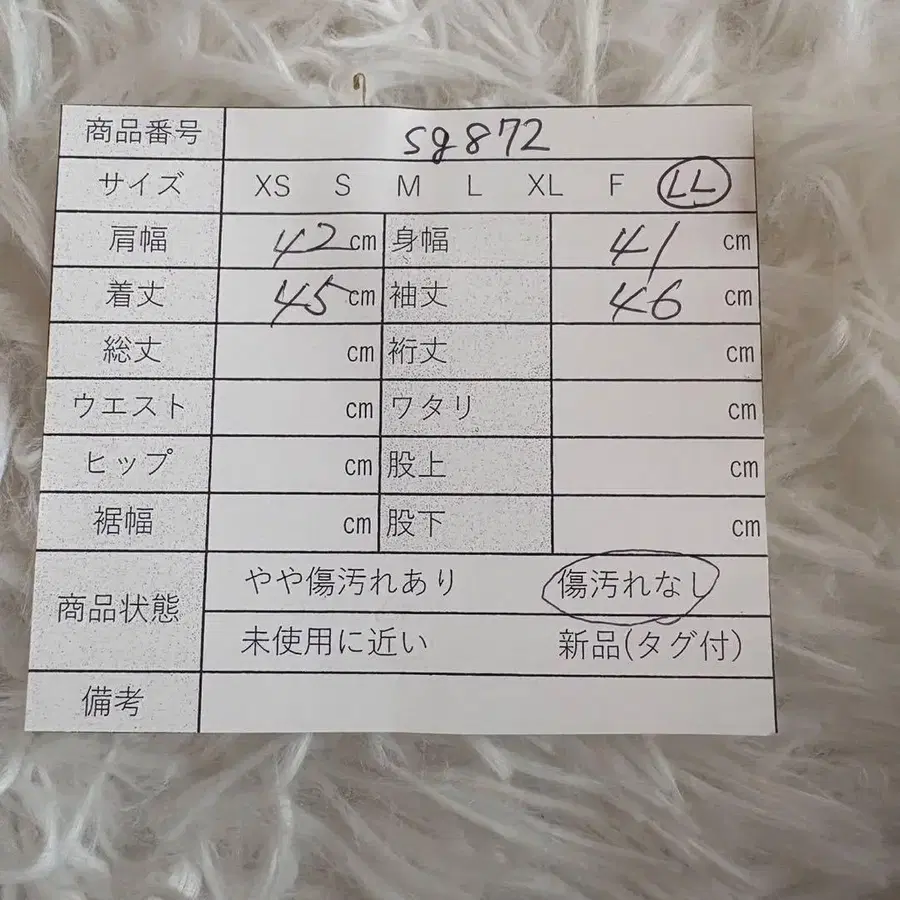 商品番号 sg872
サイズ XS S M L XL F LL
肩幅 42cm 身幅 41 cm
着丈 45cm 袖丈 46 cm
総丈 cm 裄丈 cm
ウエスト cm ワタリ cm
ヒップ cm 股上 cm
裾幅 cm 股下 cm
商品状態 やや傷汚れあり 傷汚れなし
未使用に近い 新品(タグ付)
備考